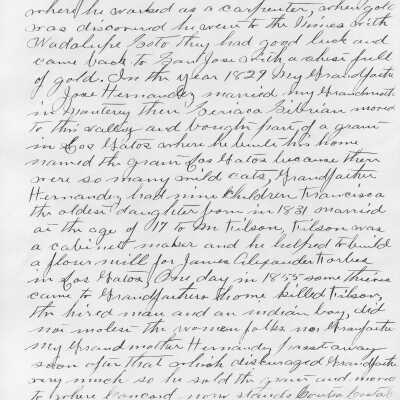 where he worked as a carpenter, when gold
was discovered he went to the mines with
Wadalupe Soto they had good luck and
came back to San Jose with a shoe full
of gold. In the year 1829 My Grandfather
Jose Hernandez married my Grandmother
in Monterey then Ceriaca Cibrian moved
to this valley and bought part of a grant
in Los Gatos where he built his home
named the grant Los Gatos because there
were so many wild cats, Grandfather
Hernandez had nine children Francisca
the oldest daughter born in 1831 married
at the age of 17 to Mr Filson, Filson was
a cabinet maker and he helped to build
a flour mill for James Alexander Forbes
in Los Gatos, One day in 1855 some thieves
came to Grandfathers home killed Filson,
the hired man and an indian boy, did
not molest the women folks nor Grandfather
My Grand mother Hernandez past away
soon after that which discouraged Grandfather
very much so he sold the grant and moved
to where Concord now stands